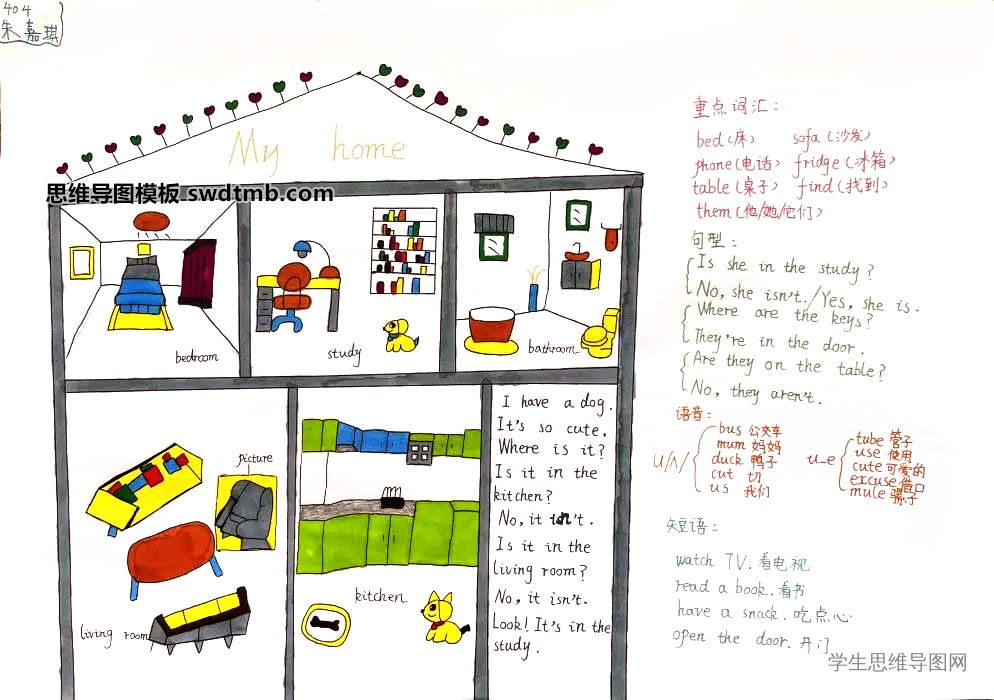 404
朱嘉琪
My home
思维导图模板 swdtmb.com
bedroom
study
bathroom
picture
living room
kitchen
I have a dog.
It's so cute.
Where is it?
Is it in the
kitchen?
No, it isn't.
Is it in the
living room?
No, it isn't.
Look! It's in the
study.
重点词汇:
bed(床) sofa(沙发)
phone(电话) fridge(冰箱)
table(桌子) find(找到)
them(他/她/它们)
句型:
Is she in the study?
No, she isn't./Yes, she is.
Where are the keys?
They're in the door.
Are they on the table?
No, they aren't.
语音:
u/ʌ/
bus 公交车
mum 妈妈
duck 鸭子
cut 切
us 我们
u_e
tube 管子
use 使用
cute 可爱的
excuse 借口
mule 骡子
短语:
watch TV.看电视
read a book.看书
have a snack.吃点心
open the door.开门
学生思维导图网